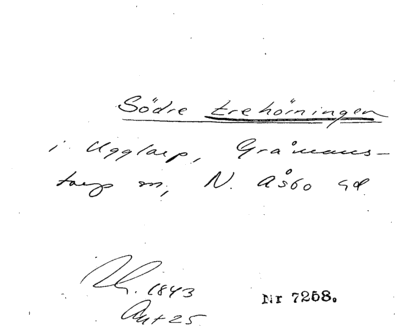 Södre trehörningen
i Ugglarp, Gråmans-
torp sn, N. Åsbo hd
1843
Akt 25
Nr 7258.